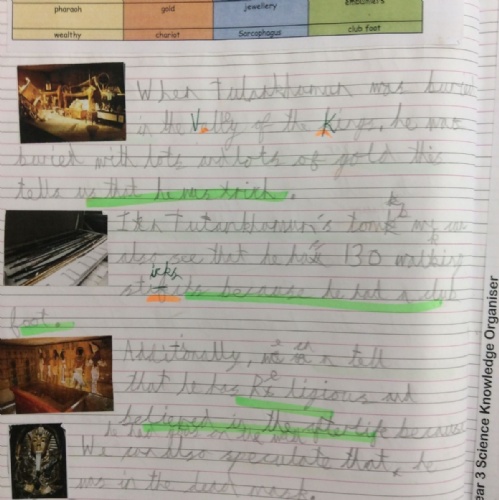 pharaoh gold jewellery embalmers
wealthy chariot Sarcophagus club foot
When Tutankhamun was buried
in the Vally of the Kings, he was
buried with lots and lots of gold this
tells us that he was rich.
In Tutankhamun's tomb we can
also see that he had 130 walking
sticks because he had a club
foot.
Additionally, we can tell
that he was Religious and
believed in the afterlife because
We can also speculate that, he
was in the mask
ear 3 Science Knowledge Organiser